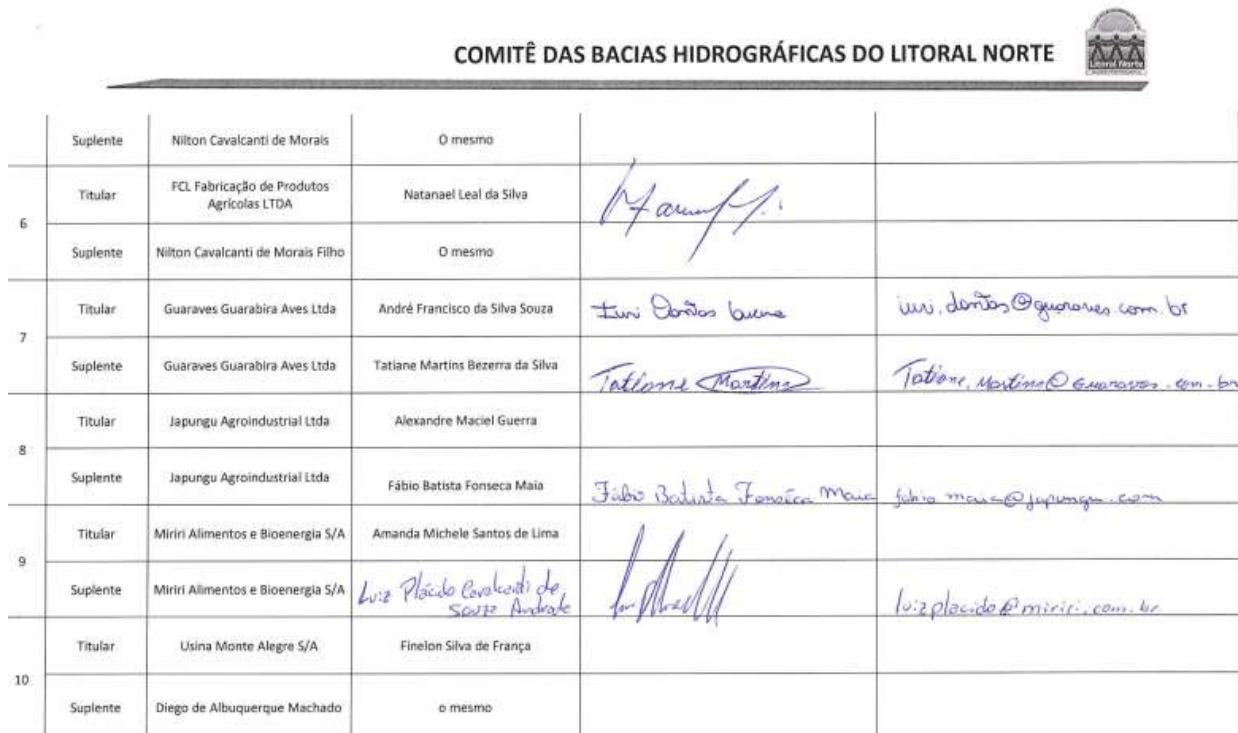 COMITÊ DAS BACIAS HIDROGRÁFICAS DO LITORAL NORTE
Litoral Norte
Suplente Nilton Cavalcanti de Morais O mesmo
6
Titular FCL Fabricação de Produtos Agrícolas LTDA Natanael Leal da Silva
Suplente Nilton Cavalcanti de Morais Filho O mesmo
7
Titular Guaraves Guarabira Aves Ltda André Francisco da Silva Souza Iuri Dantas iuri.dantas@guaraves.com.br
Suplente Guaraves Guarabira Aves Ltda Tatiane Martins Bezerra da Silva Tatiane Martins Tatiane.Martins@Guaraves.com.br
8
Titular Japungu Agroindustrial Ltda Alexandre Maciel Guerra
Suplente Japungu Agroindustrial Ltda Fábio Batista Fonseca Maia Fábio Batista Fonseca Maia fabio maia@japungu.com
9
Titular Miriri Alimentos e Bioenergia S/A Amanda Michele Santos de Lima
Suplente Miriri Alimentos e Bioenergia S/A Luiz Plácido Cavalcanti de Souza Andrade luizplacido@miriri.com.br
10
Titular Usina Monte Alegre S/A Finelon Silva de França
Suplente Diego de Albuquerque Machado o mesmo